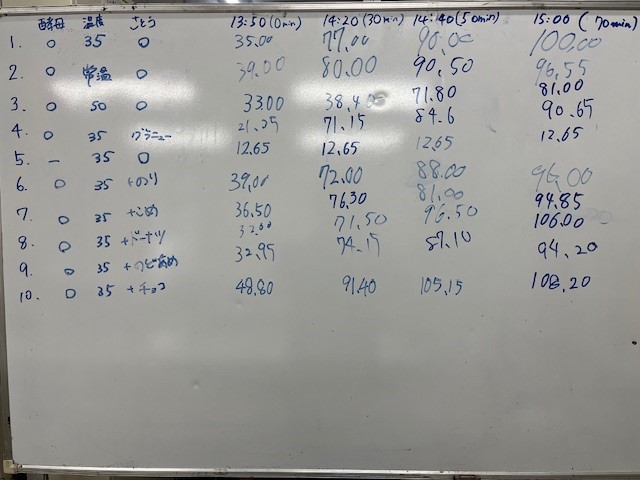 酵母 温度 さとう 13:50(0min) 14:20(30min) 14:40(50min) 15:00(70min)
1. ○ 35 ○ 35.00 77.00 90.00 100.00
2. ○ 常温 ○ 39.00 80.00 90.50 96.55
3. ○ 50 ○ 33.00 71.80 81.00
4. ○ 35 グラニュー 21.25 71.15 84.6 90.65
5. - 35 ○ 12.65 12.65 12.65 12.65
6. ○ 35 +のり 39.00 72.00 88.00 96.00
7. ○ 35 +こめ 36.50 76.30 81.00 94.85
8. ○ 35 +ドーナツ 71.50 96.50 106.00
9. ○ 35 +のどあめ 32.95 74.15 87.10 94.20
10. ○ 35 +チョコ 48.80 91.40 105.15 108.20